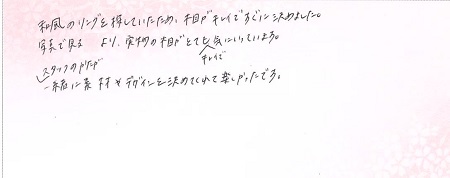 和風のリングを探していたため、木目がキレイですぐに決めました。
写真で見る より、実物の木目がとても気にいっています。
キレイで
スタッフのかたが
一緒に素材やデザインを決めてくれて楽しかったです。